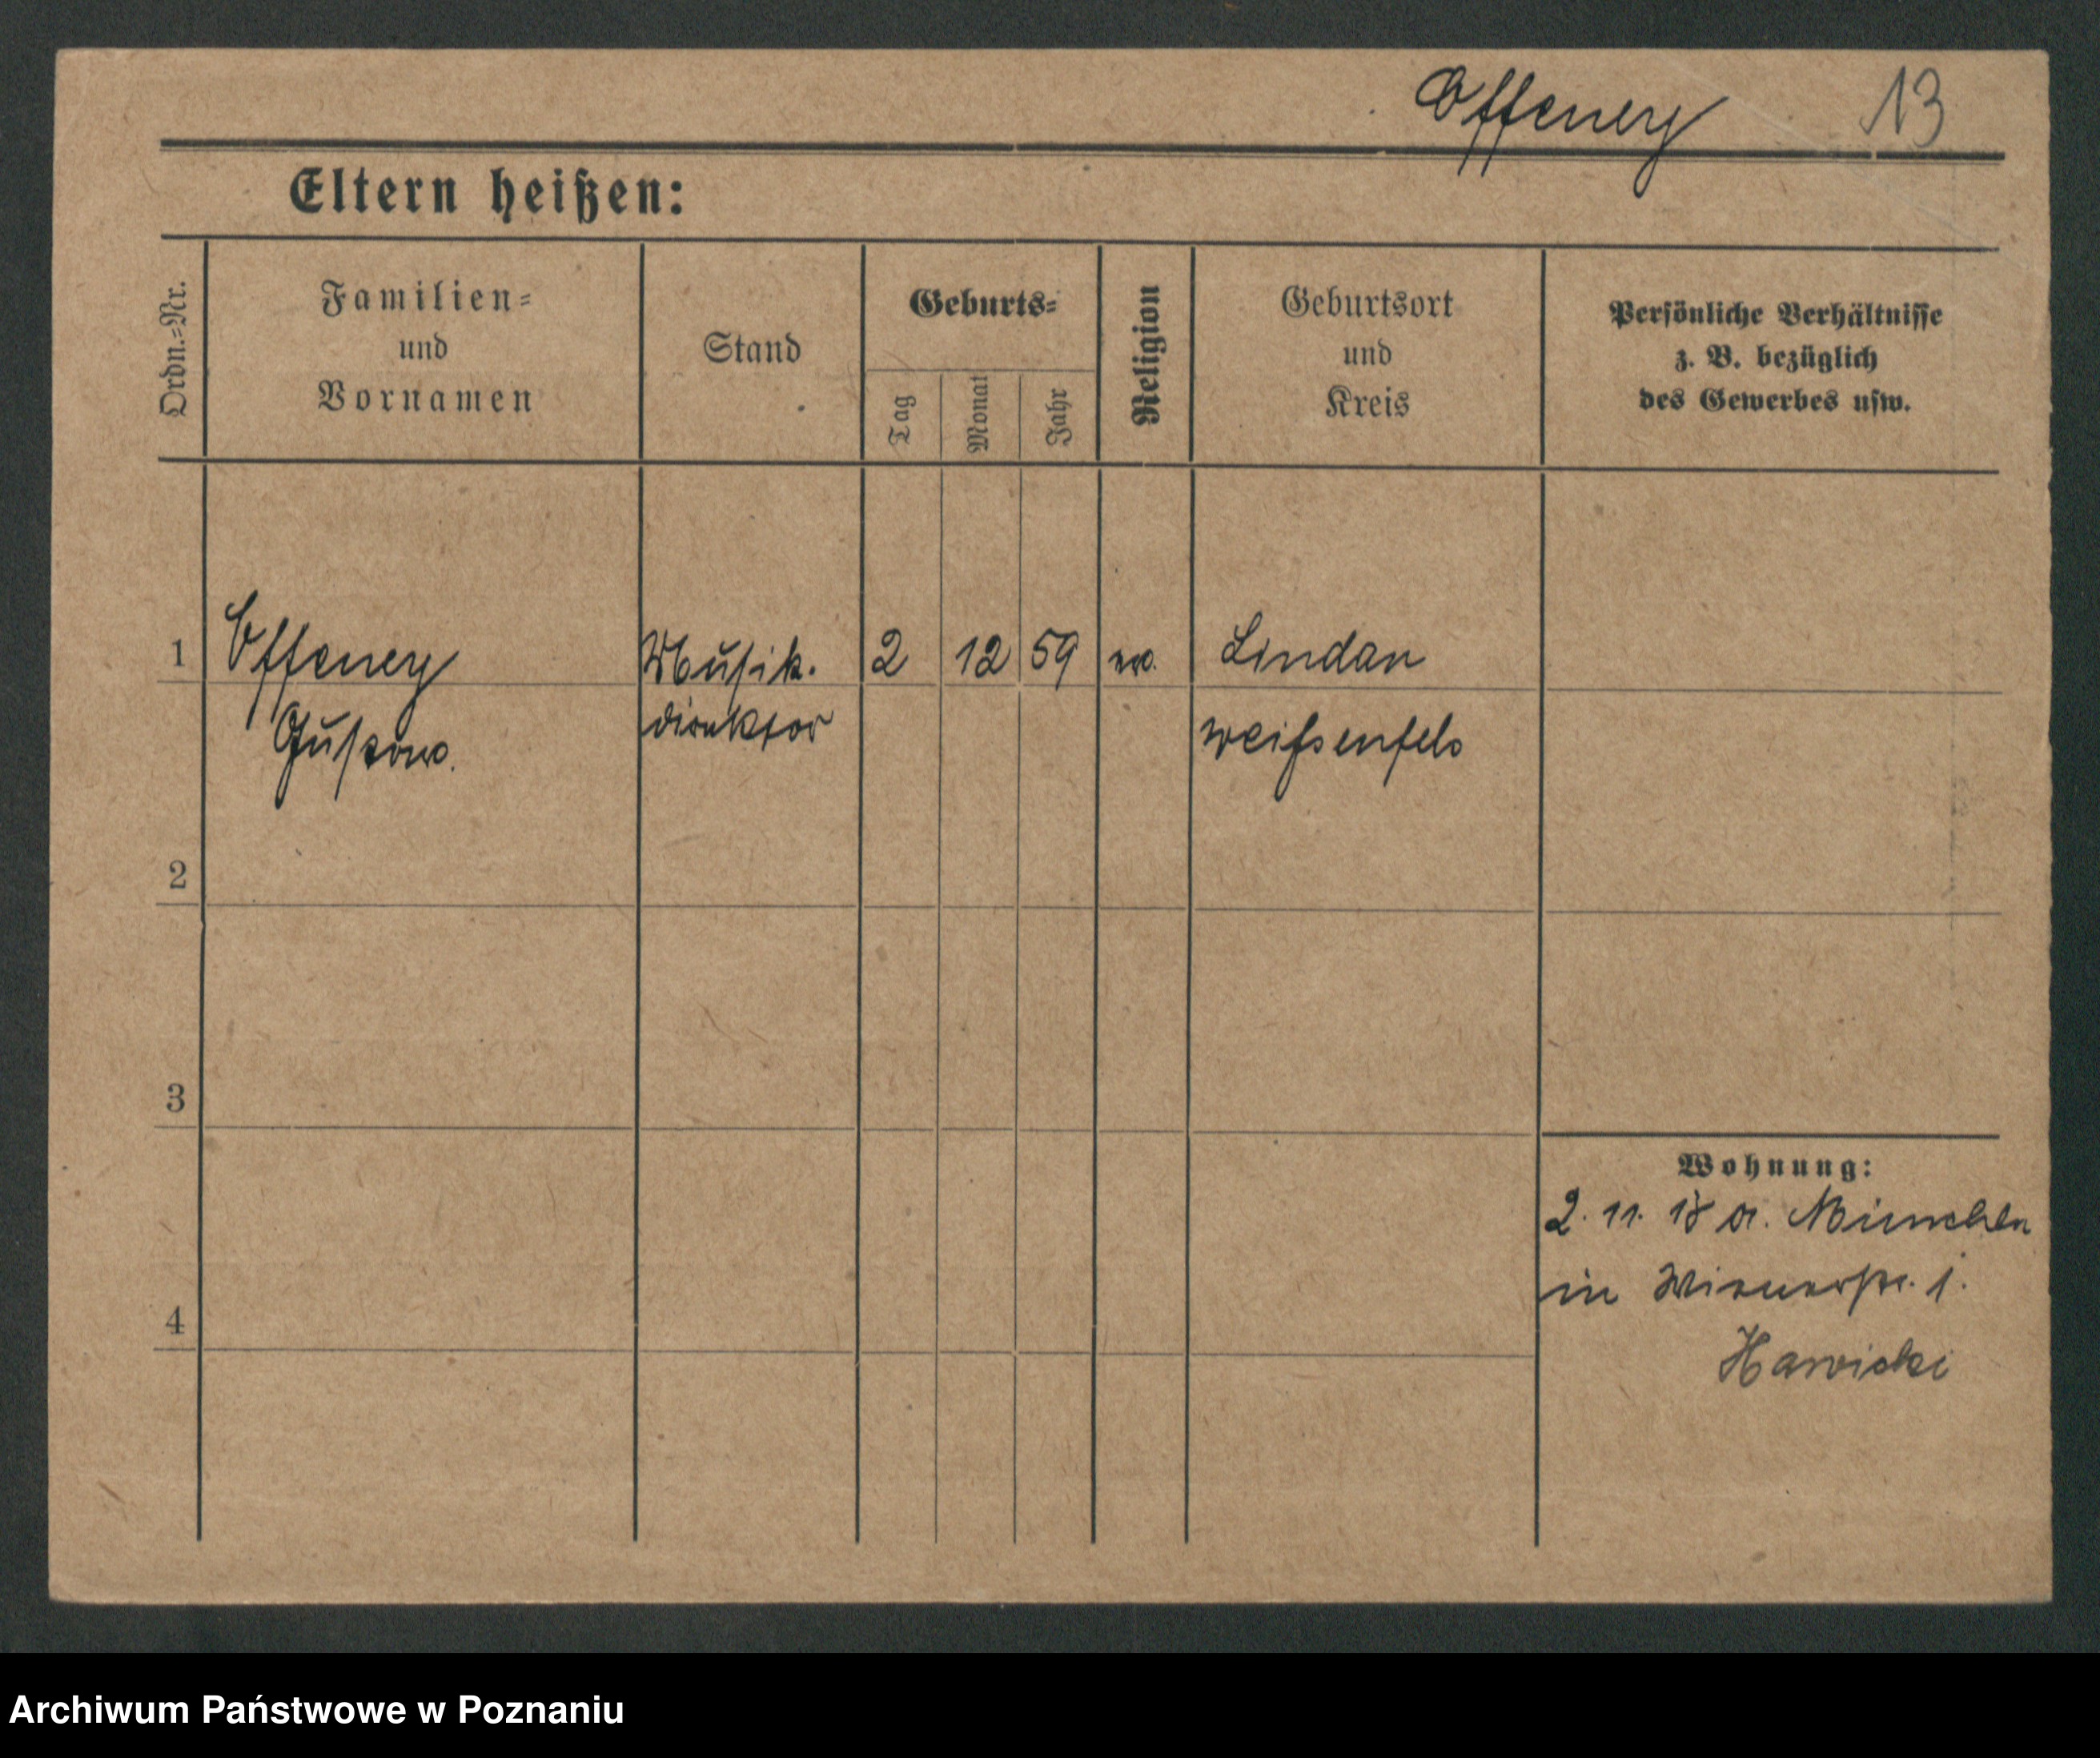 Offeney 13
Eltern heißen:
Ordn.=Nr.
Familien=
und
Vornamen
Stand
Geburts=
Tag
Monat
Jahr
Religion
Geburtsort
und
Kreis
Persönliche Verhältnisse
z. B. bezüglich
des Gewerbes usw.
1 Offeney Musik. 2 12 59 ev. Lindau
Gustav. direktor Weißenfels
2
3
Wohnung:
2. 11. 18 a. München
in Wienerstr. 1.
4
Hawicki
Archiwum Państwowe w Poznaniu